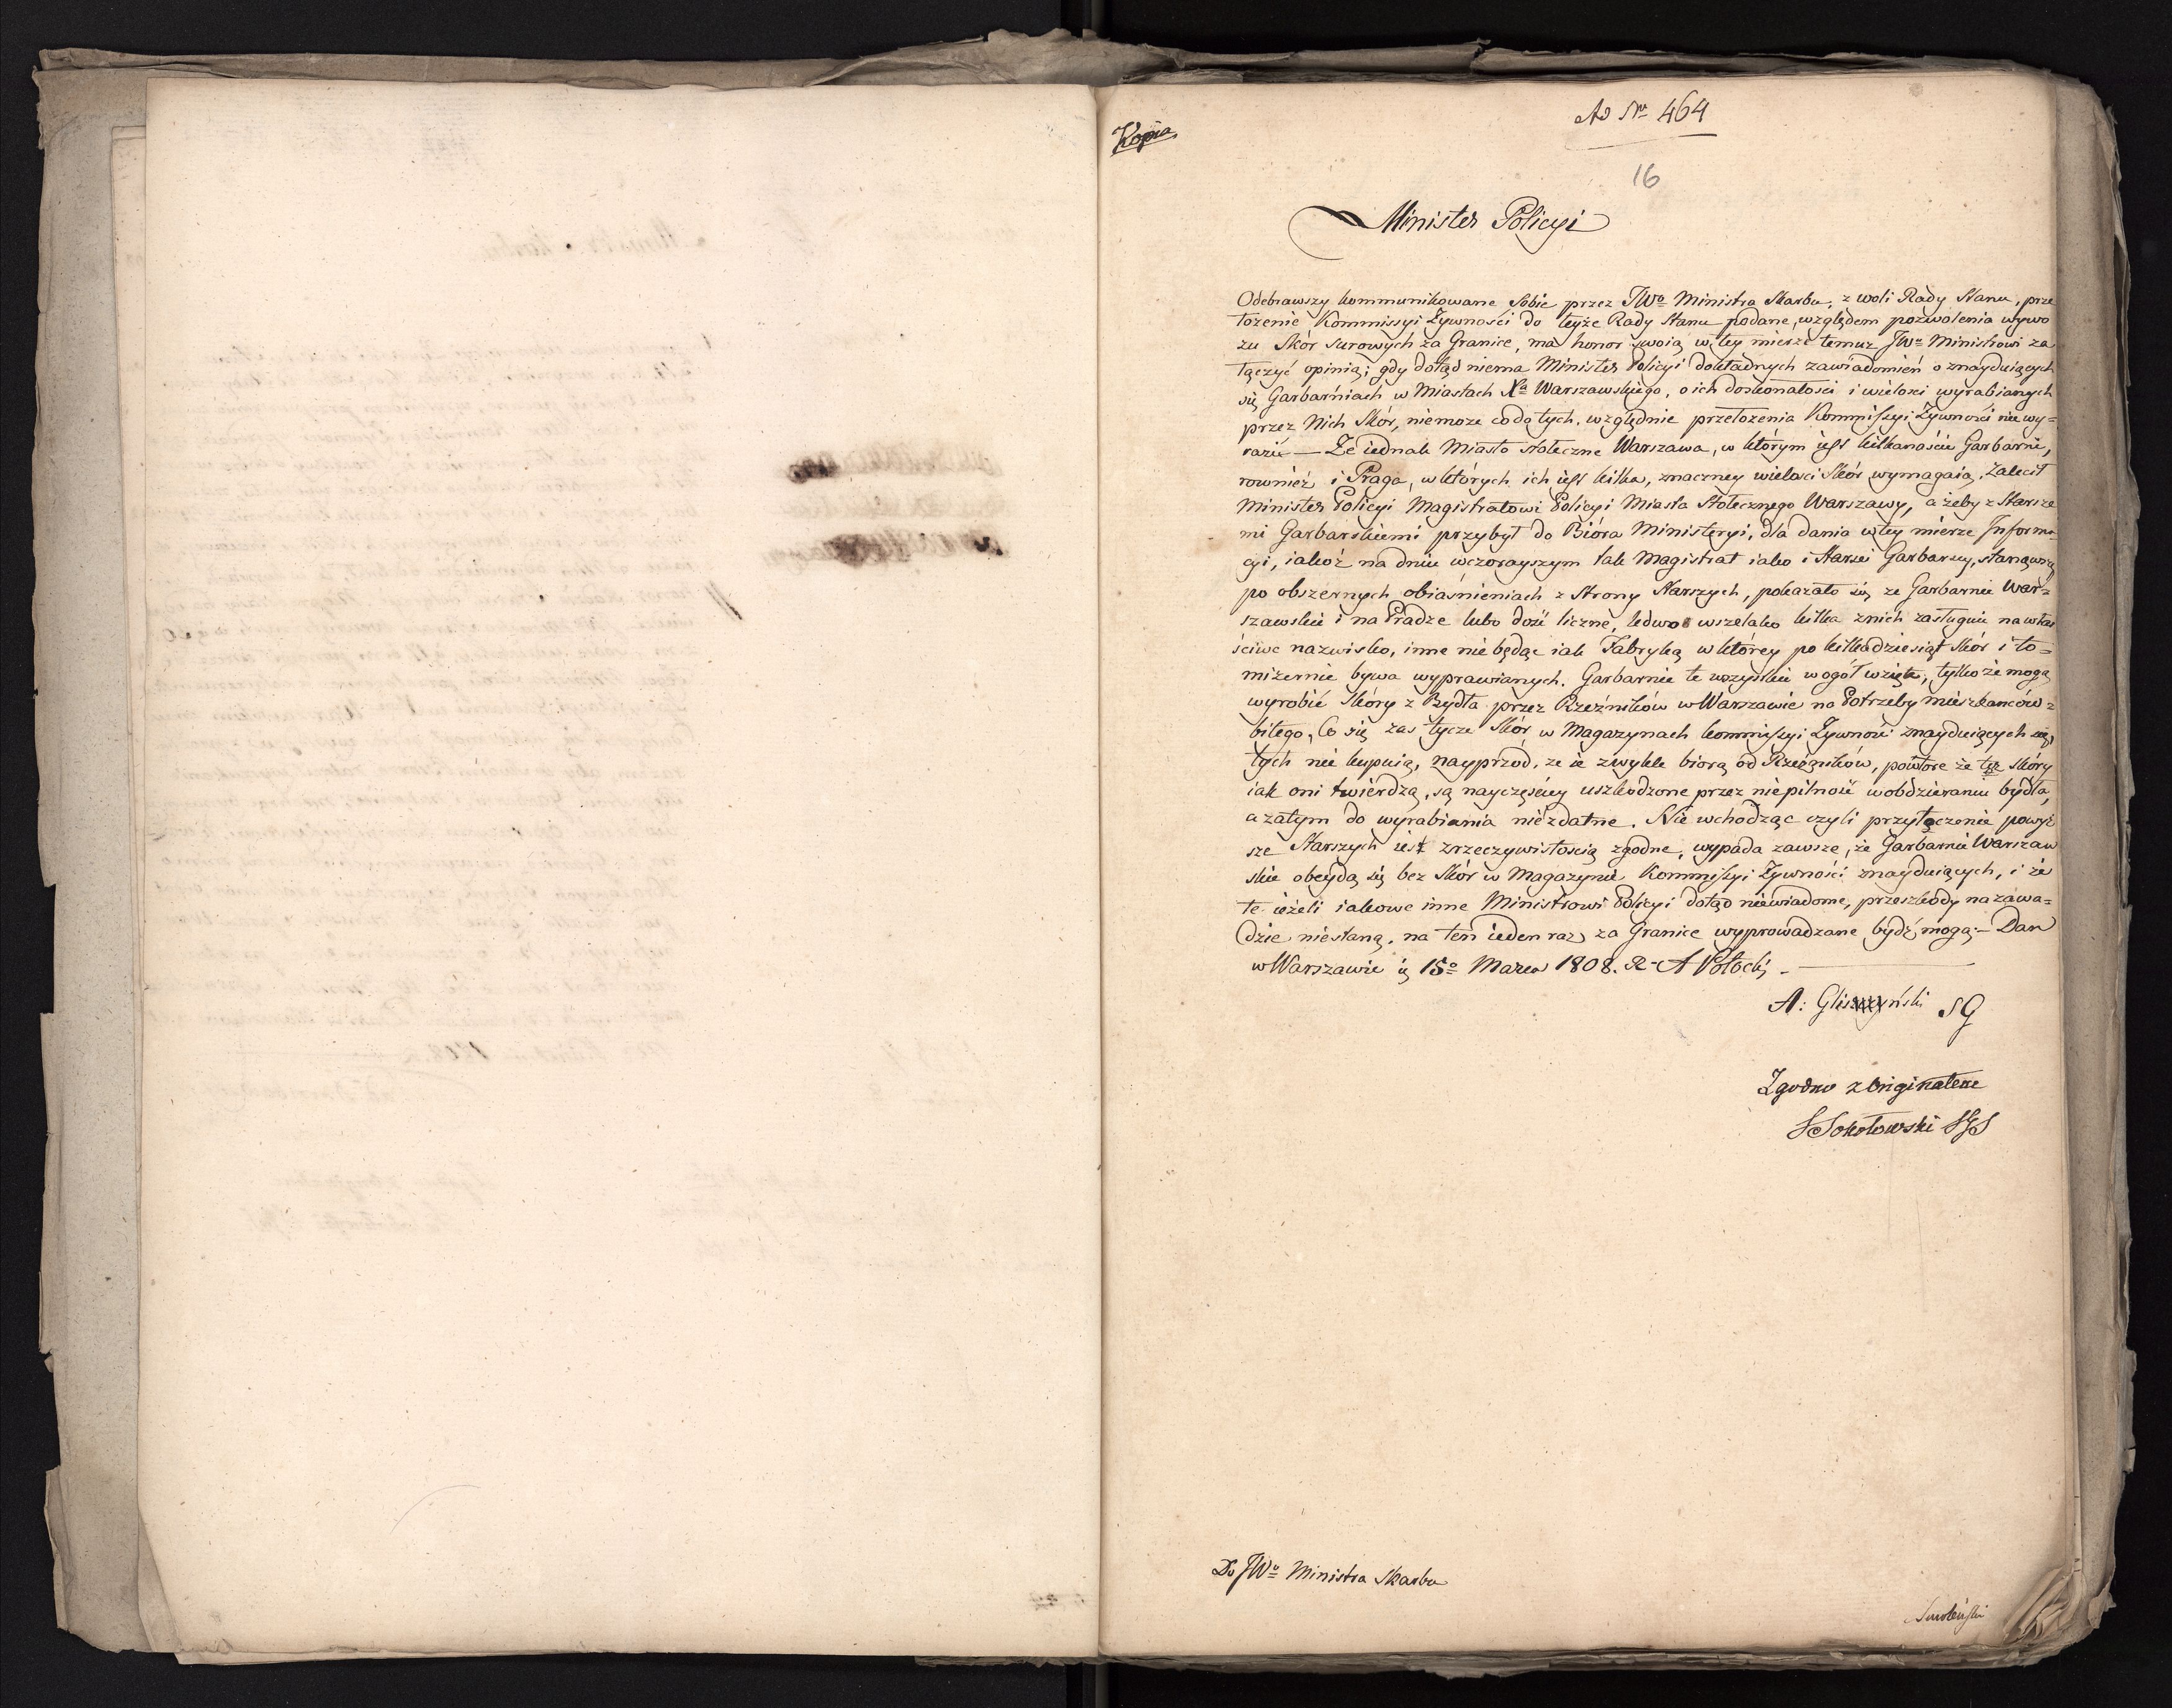 Kopia
Ad Nr 464
16
Minister Policyi
Odebrawszy kommunikowane Sobie przez JWo Ministra Skarbu, z woli Rady Stanu, prze
łożenie Kommissyi Żywności do teyże Rady Stanu podane, względem pozwolenia wywo
zu Skór surowych za Granice, ma honor swoią w tey mierze temuz JWu Ministrowi za
łączyć opinią; gdy dotąd niema Minister Policyi dokładnych zawiadomień o znayduiących
się Garbarniach w Miastach Xa Warszawskiego, o ich doskonałości i wielosci wyrabianych
przez Nich Skór, niemoze co do tych, względnie przełożenia Kommissyi Żywności nic wy=
razić — Że iednak Miasto stołeczne Warszawa, w którym iest kilkanaście Garbarni,
rownież i Praga, w których ich iest kilka, znaczney wielosci Skór wymagaią, Zalecił
Minister Policyi Magistratowi Policyi Miasta Stołecznego Warszawy, ażeby z Starsze
mi Garbarskiemi przybył do Bióra Ministeryi, dla dania w tey mierze Informa
cyi, iakoż na dniu wczorayszym tak Magistrat iako i Starsi Garbarzy, stanąwszy
po obszernych obiaśnieniach z Strony Starszych, pokazało się ze Garbarnie War=
szawskie i na Pradze lubo dość liczne, ledwo wszelako kilka z nich zasługuie na wła
ściwe nazwisko, inne nie będąc iak Fabryką w którey po kilkadziesiąt skór i to=
mizernie bywa wyprawianych. Garbarnie te wszystkie w ogół wzięte, tylko że mogą
wyrobić Skóry z Bydła przez Rzeźników w Warszawie na Potrzeby mieszkanców=
bitego, Co się zas tycze Skór w Magazynach kommissyi Żywności znayduiących się,
tych nie kupuią, nayprzód, ze ie zwykle biorą od Rzeźników, powtore że też skóry
iak oni twierdzą, są nayczęściey uszkodzone przez niepilność w obdzieraniu bydła,
a zatym do wyrabiania niezdatne. Nie wchodząc czyli przyłączenie powyż
sze Starszych iest z rzeczywistością zgodne, wypada zawsze, że Garbarnie Warszaw
skie obeydą się bez Skór w Magazynie Kommissyi Żywności znayduiących, i że
te ieżeli iakowe inne Ministrowi Policyi dotąd niewiadome, przeszkody na zawa=
dzie niestaną, na ten ieden raz za Granice wyprowadzane bydź mogą; — Dan
w Warszawie d 15o Marca 1808. R. A Potocki, —
A: Gliszczyński SG
Zgodno z Originałem
S Sokołowski SGS
Do JWo Ministra Skarbu
Smoleński